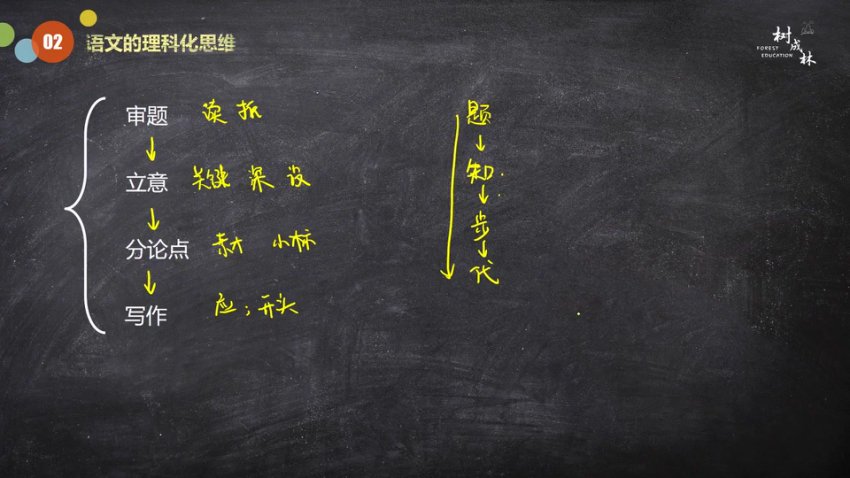 02 语文的理科化思维
树成林
FOREST EDUCATION
审题 读 抓
立意 关键 深 设
分论点 素才 小标
写作 应；开头
题
知
步
代